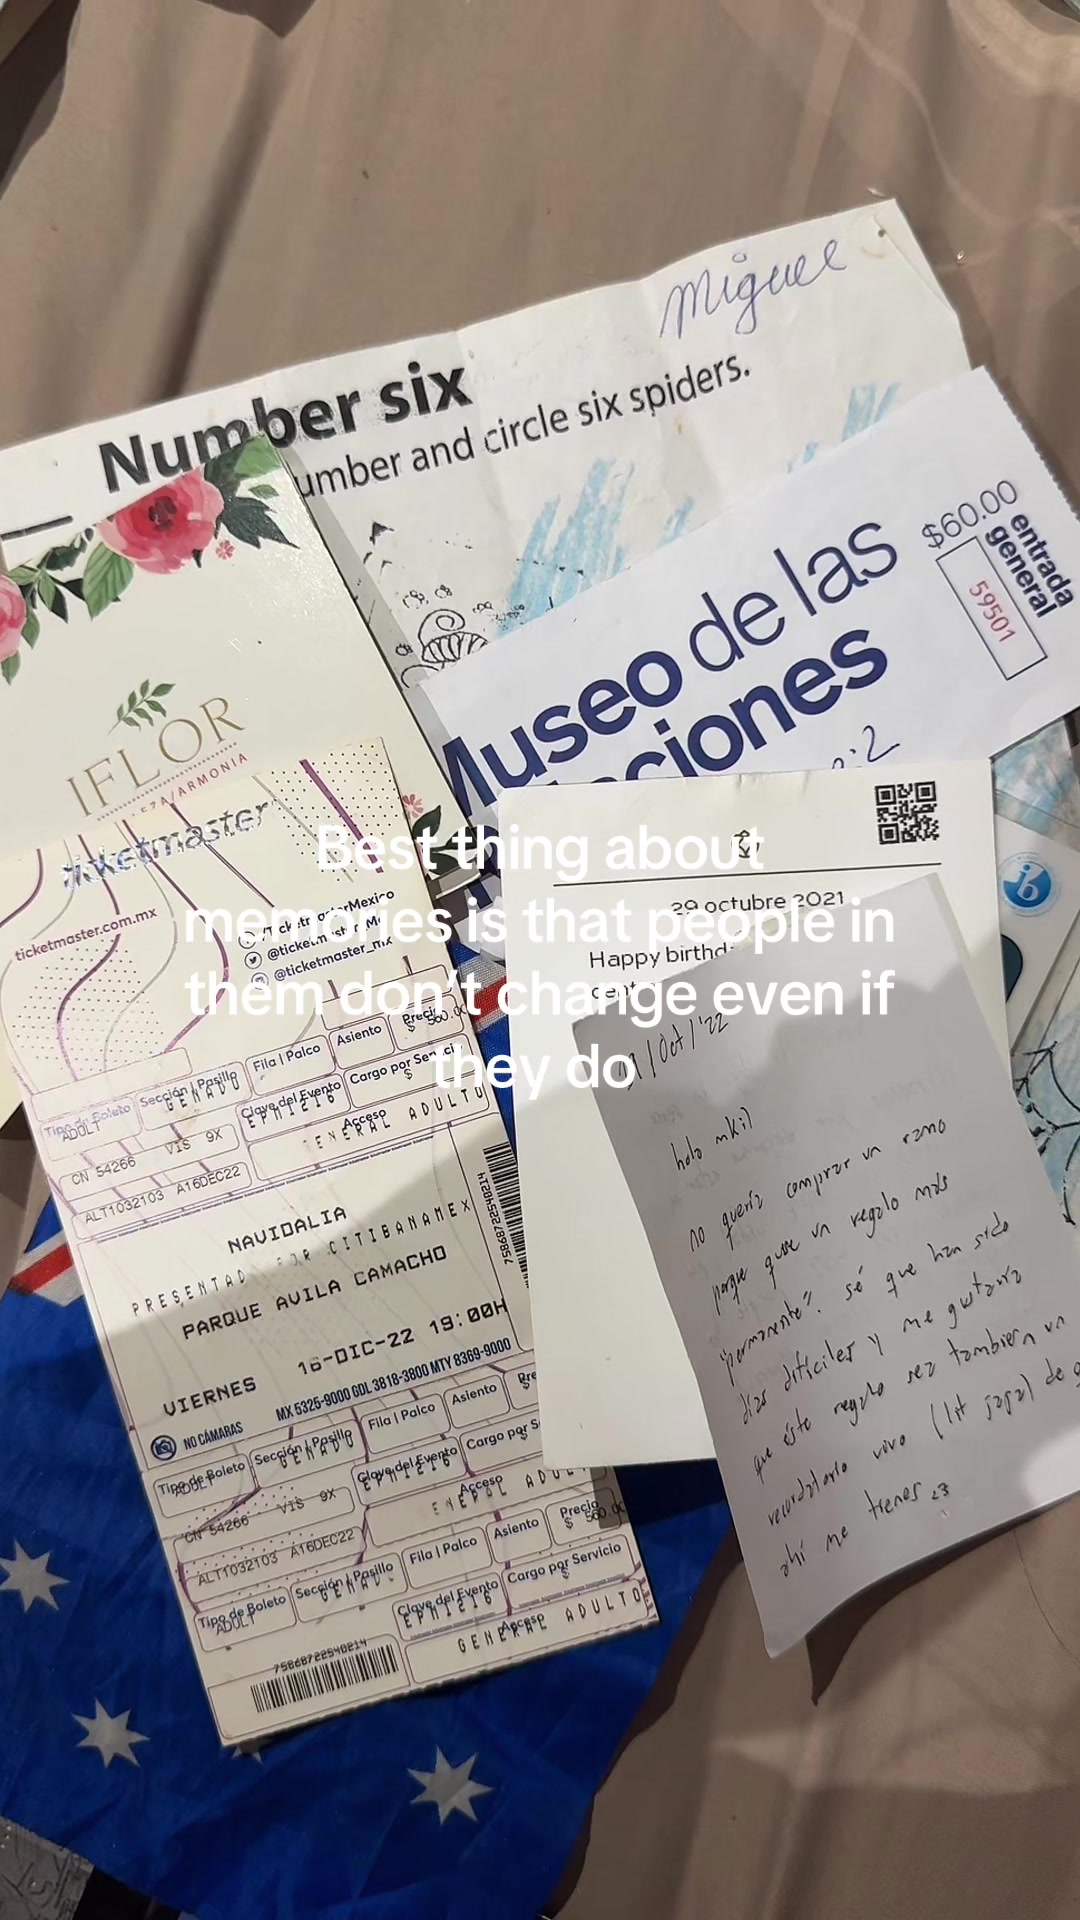 Miguel
Number six
umber and circle six spiders.
$60.00
entrada
general
59501
Museo de las
ciones
IFLOR
ZA/ARMONIA
ticketmaster
ticketmaster.com.mx
/TicketmasterMexico
@ticketmaster_Me
@ticketmaster_mx
Best thing about
memories is that people in
them don't change even if
they do
29 octubre 2021
Happy birthd
Tipo de Boleto
ADULT
Sección | Pasillo
GENADU
Fila | Palco
Asiento
Precio
$ 560.00
Clave del Evento
EPM1216
Cargo por Servicio
$
Acceso
GENERAL ADULTO
CN 54266
VIS 9X
ALT1032103 A16DEC22
NAVIDALIA
PRESENTAD POR CITIBANAMEX
PARQUE AVILA CAMACHO
VIERNES 16-DIC-22 19:00H
NO CÁMARAS
MX 5325-9000 GDL 3818-3800 MTY 8369-9000
75868722548214
Tipo de Boleto
ADULT
Sección | Pasillo
GENADU
Fila | Palco
Asiento
Pre
Clave del Evento
EPM1216
Cargo por S
Acceso
CN 54266
VIS 9X
ALT1032103 A16DEC22
Precio
$ 560.00
Tipo de Boleto
ADULT
Sección | Pasillo
Fila | Palco
Asiento
Clave del Evento
EPM1216
Cargo por Servicio
Acceso
GENERAL ADULTO
75868722548214
ib
/Oct/'22
hola mkil
no quería comprar un ramo
porque quise un regalo más
"permanente". sé que han sido
días difíciles y me gustaría
que éste regalo sea también un
recordatorio vivo (lit jaja) de q
ahí me tienes <3